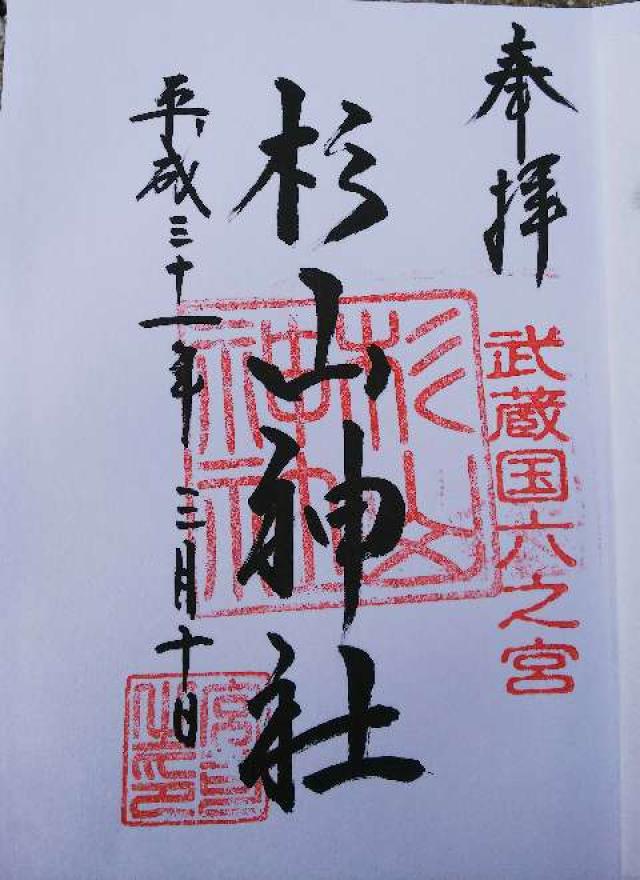 奉拝
武蔵国六之宮
杉山神社
杉山神社
平成三十一年 三月十日
宮司之印